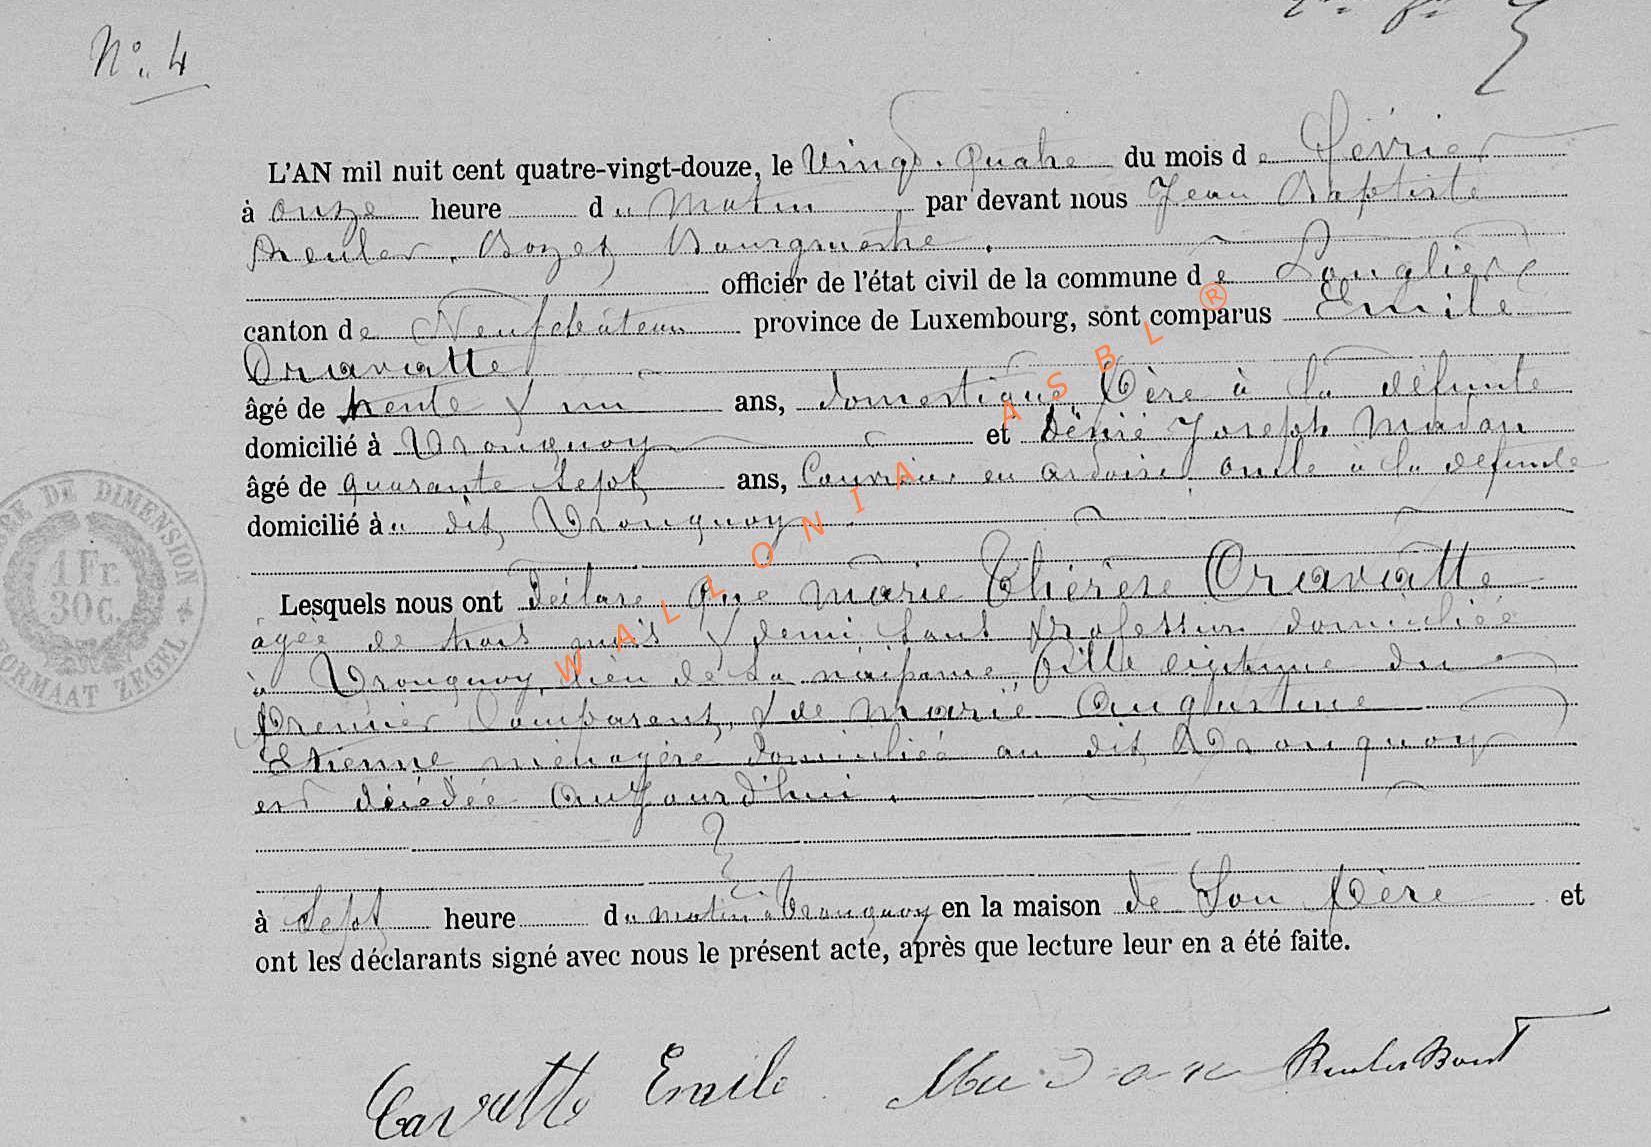 N° 4
L'AN mil huit cent quatre-vingt-douze, le Vingt-quatre du mois de Février
à onze heure du Matin par devant nous Jean Baptiste
Bourgmestre
officier de l'état civil de la commune de Longlier
canton de Neufchâteau province de Luxembourg, sont comparus Emile
Cravatte
âgé de trente & un ans, domestique Père à la défunte
domicilié à Tronquoy et Désiré Joseph Madan
âgé de quarante sept ans, Couvreur en ardoises oncle à la défunte
domicilié au dit Tronquoy
Lesquels nous ont déclaré que Marie Thérèse Cravatte
âgée de trois mois & demi sans profession domiciliée
à Tronquoy, lieu de sa naissance, fille légitime du
premier Comparant, & de Marie Augustine
Etienne ménagère domiciliée au dit Tronquoy
est décédée Aujourd'hui
à sept heure du matin à Tronquoy en la maison de Son Père et
ont les déclarants signé avec nous le présent acte, après que lecture leur en a été faite.
Cravatte Emile Madan
TIMBRE DE DIMENSION
1 Fr.
30 C.
FORMAAT ZEGEL
WALLONIA ASBL ®